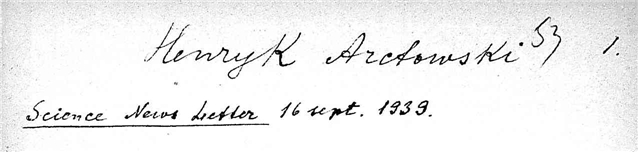 Henryk Arctowski 53 1.
Science News Letter 16 sept. 1939.